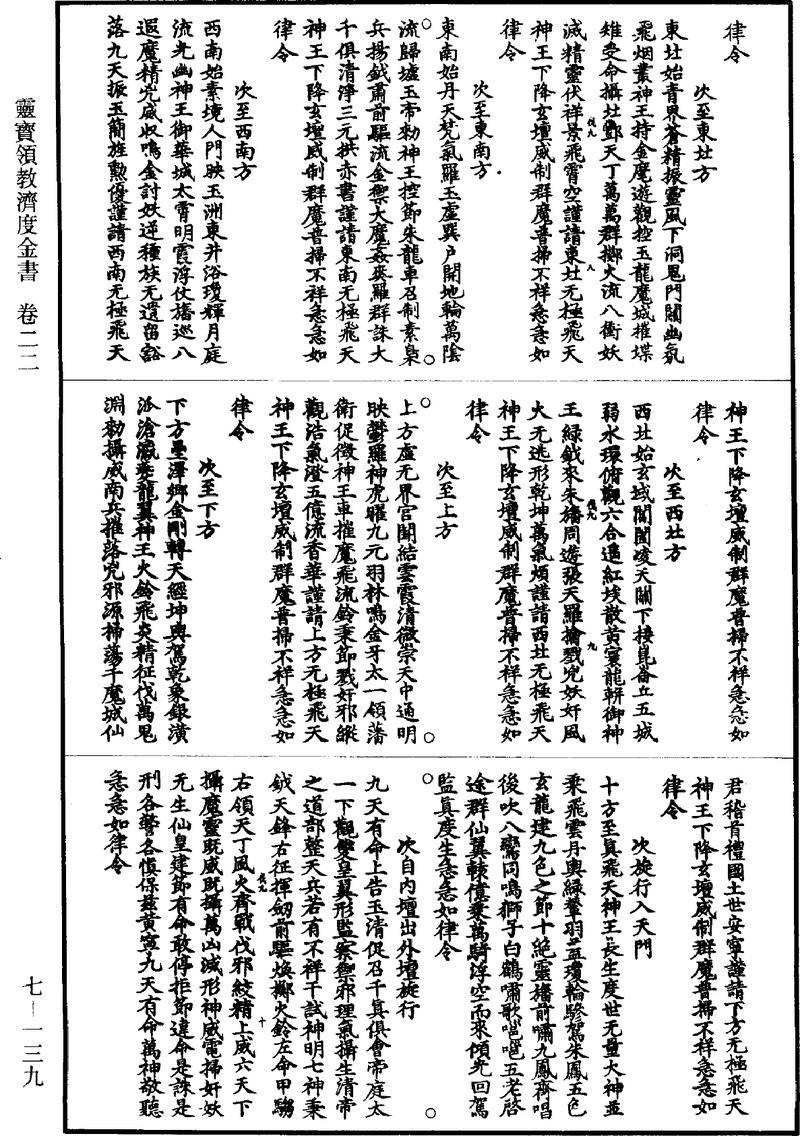 律令
次至東北方
東北始青界蒼精振靈風下洞鬼門關幽氛
飛烟叢神王持金麾遊觀控玉龍魔城摧堞
雉受命攝北酆天丁萬萬群擲火流八衝妖
滅精靈伏祥景飛霄空謹請東北无極飛天
神王下降玄壇威制群魔普掃不祥急急如
律令
次至東南方
東南始丹天梵氣羅玉虛巽户開地輪萬陰
流歸墟玉帝勑神王控節朱龍車召制素梟
兵揚鉞肅前驅流金禦大魔姦喪羅群誅大
千俱清淨三元拱赤書謹請東南无極飛天
神王下降玄壇威制群魔普掃不祥急急如
律令
次至西南方
西南始素境人門映玉洲東井浴瓊輝月庭
流光幽神王御華城太霄明霞浮仗旛巡八
遐魔精兇威收鳴金討妖逆種族无遺留豁
落九天振玉簡旌勲優謹請西南无極飛天
神王下降玄壇威制群魔普掃不祥急急如
律令
次至西北方
西北始玄域閶闔凌天關下接崑崙丘五城
弱水環俯觀六合邊紅埃散黃寰龍軿御神
王綠鉞來朱旛周遊張天羅擒戮兇妖奸風
火无逃形乾坤萬氣煩謹請西北无極飛天
神王下降玄壇威制群魔普掃不祥急急如
律令
次至上方
上方虛无界官闕結雲霞清微崇天中通明
映鬱羅神虎曜九元羽林鳴金牙太一領瀋
衛促徵神王車摧魔飛流鈴秉節戮奸邪縱
觀浩氣澄五億流香華謹請上方无極飛天
神王下降玄壇威制群魔普掃不祥急急如
律令
次至下方
下方墨澤鄉金剛轉天經坤輿駕乾象銀潢
泝滄瀛乘龍翼神王火鈴飛炎精征伐萬鬼
淵勑攝威南兵摧落兇邪源掃蕩千魔城仙
君稽首禮國土世安寧謹請下方无極飛天
神王下降玄壇威制群魔普掃不祥急急如
律令
次旋行入天門
十方至真飛天神王長生度世无量大神並
乘飛雲丹輿綠輦羽盖瓊輪驂駕朱鳳五色
玄龍建九色之節十絶靈旛前嘯九鳳齊唱
後吹八鸞同鳴獅子白鶴嘯歌嗈嗈五老啓
途群仙翼轅億乘萬騎浮空而來傾光回駕
監真度生急急如律令
次自内壇出外壇旋行
九天有命上告玉清促召千真俱會帝庭太
一下觀雙皇翼形監察禦邪理氣攝生清帝
之道部整天兵若有不祥干試神明七神秉
鉞天鋒右征揮劒前驅焕擲火鈴左命甲騶
右領天丁風火齊戰伐邪絞精上威六天下
攝魔靈既威既攝萬凶滅形神威電掃奸妖
无生仙皇建節有命敢停拒節違命是誅是
刑各警各慎保兹黃寧九天有命萬神敬聽
急急如律令
靈寶領教濟度金書 卷二二
七—一三九